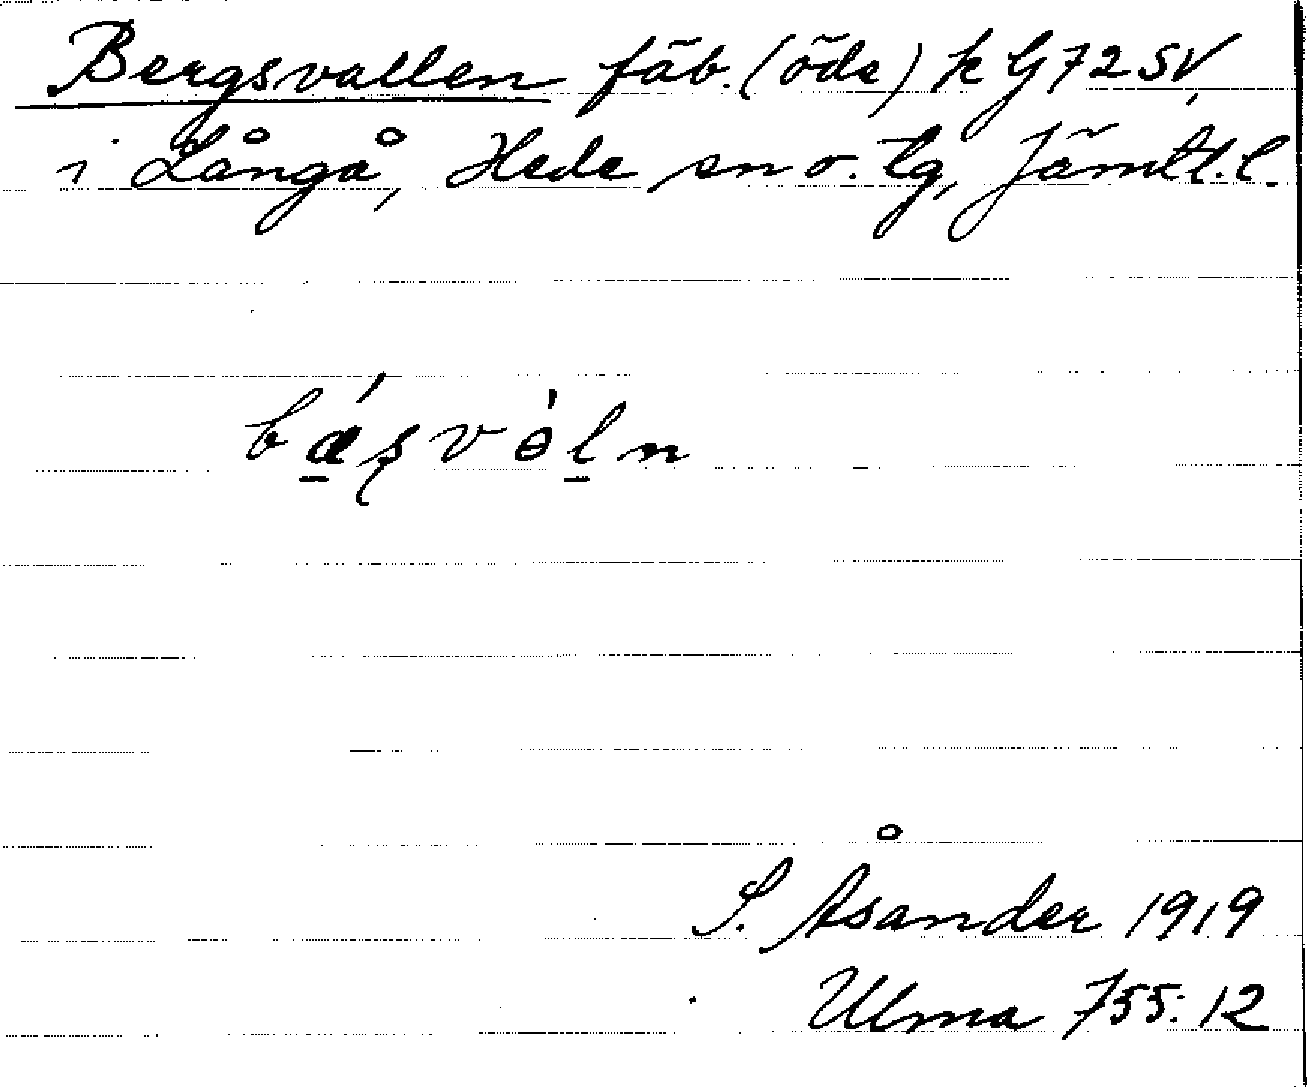 Bergsvallen fäb. (öde) k G 72 SV,
i Långå, Hede sn o. tg, Jämtl. l.
bǽ̱ʂvɵ̀ḻn
S. Åsander 1919
Ulma 755:12